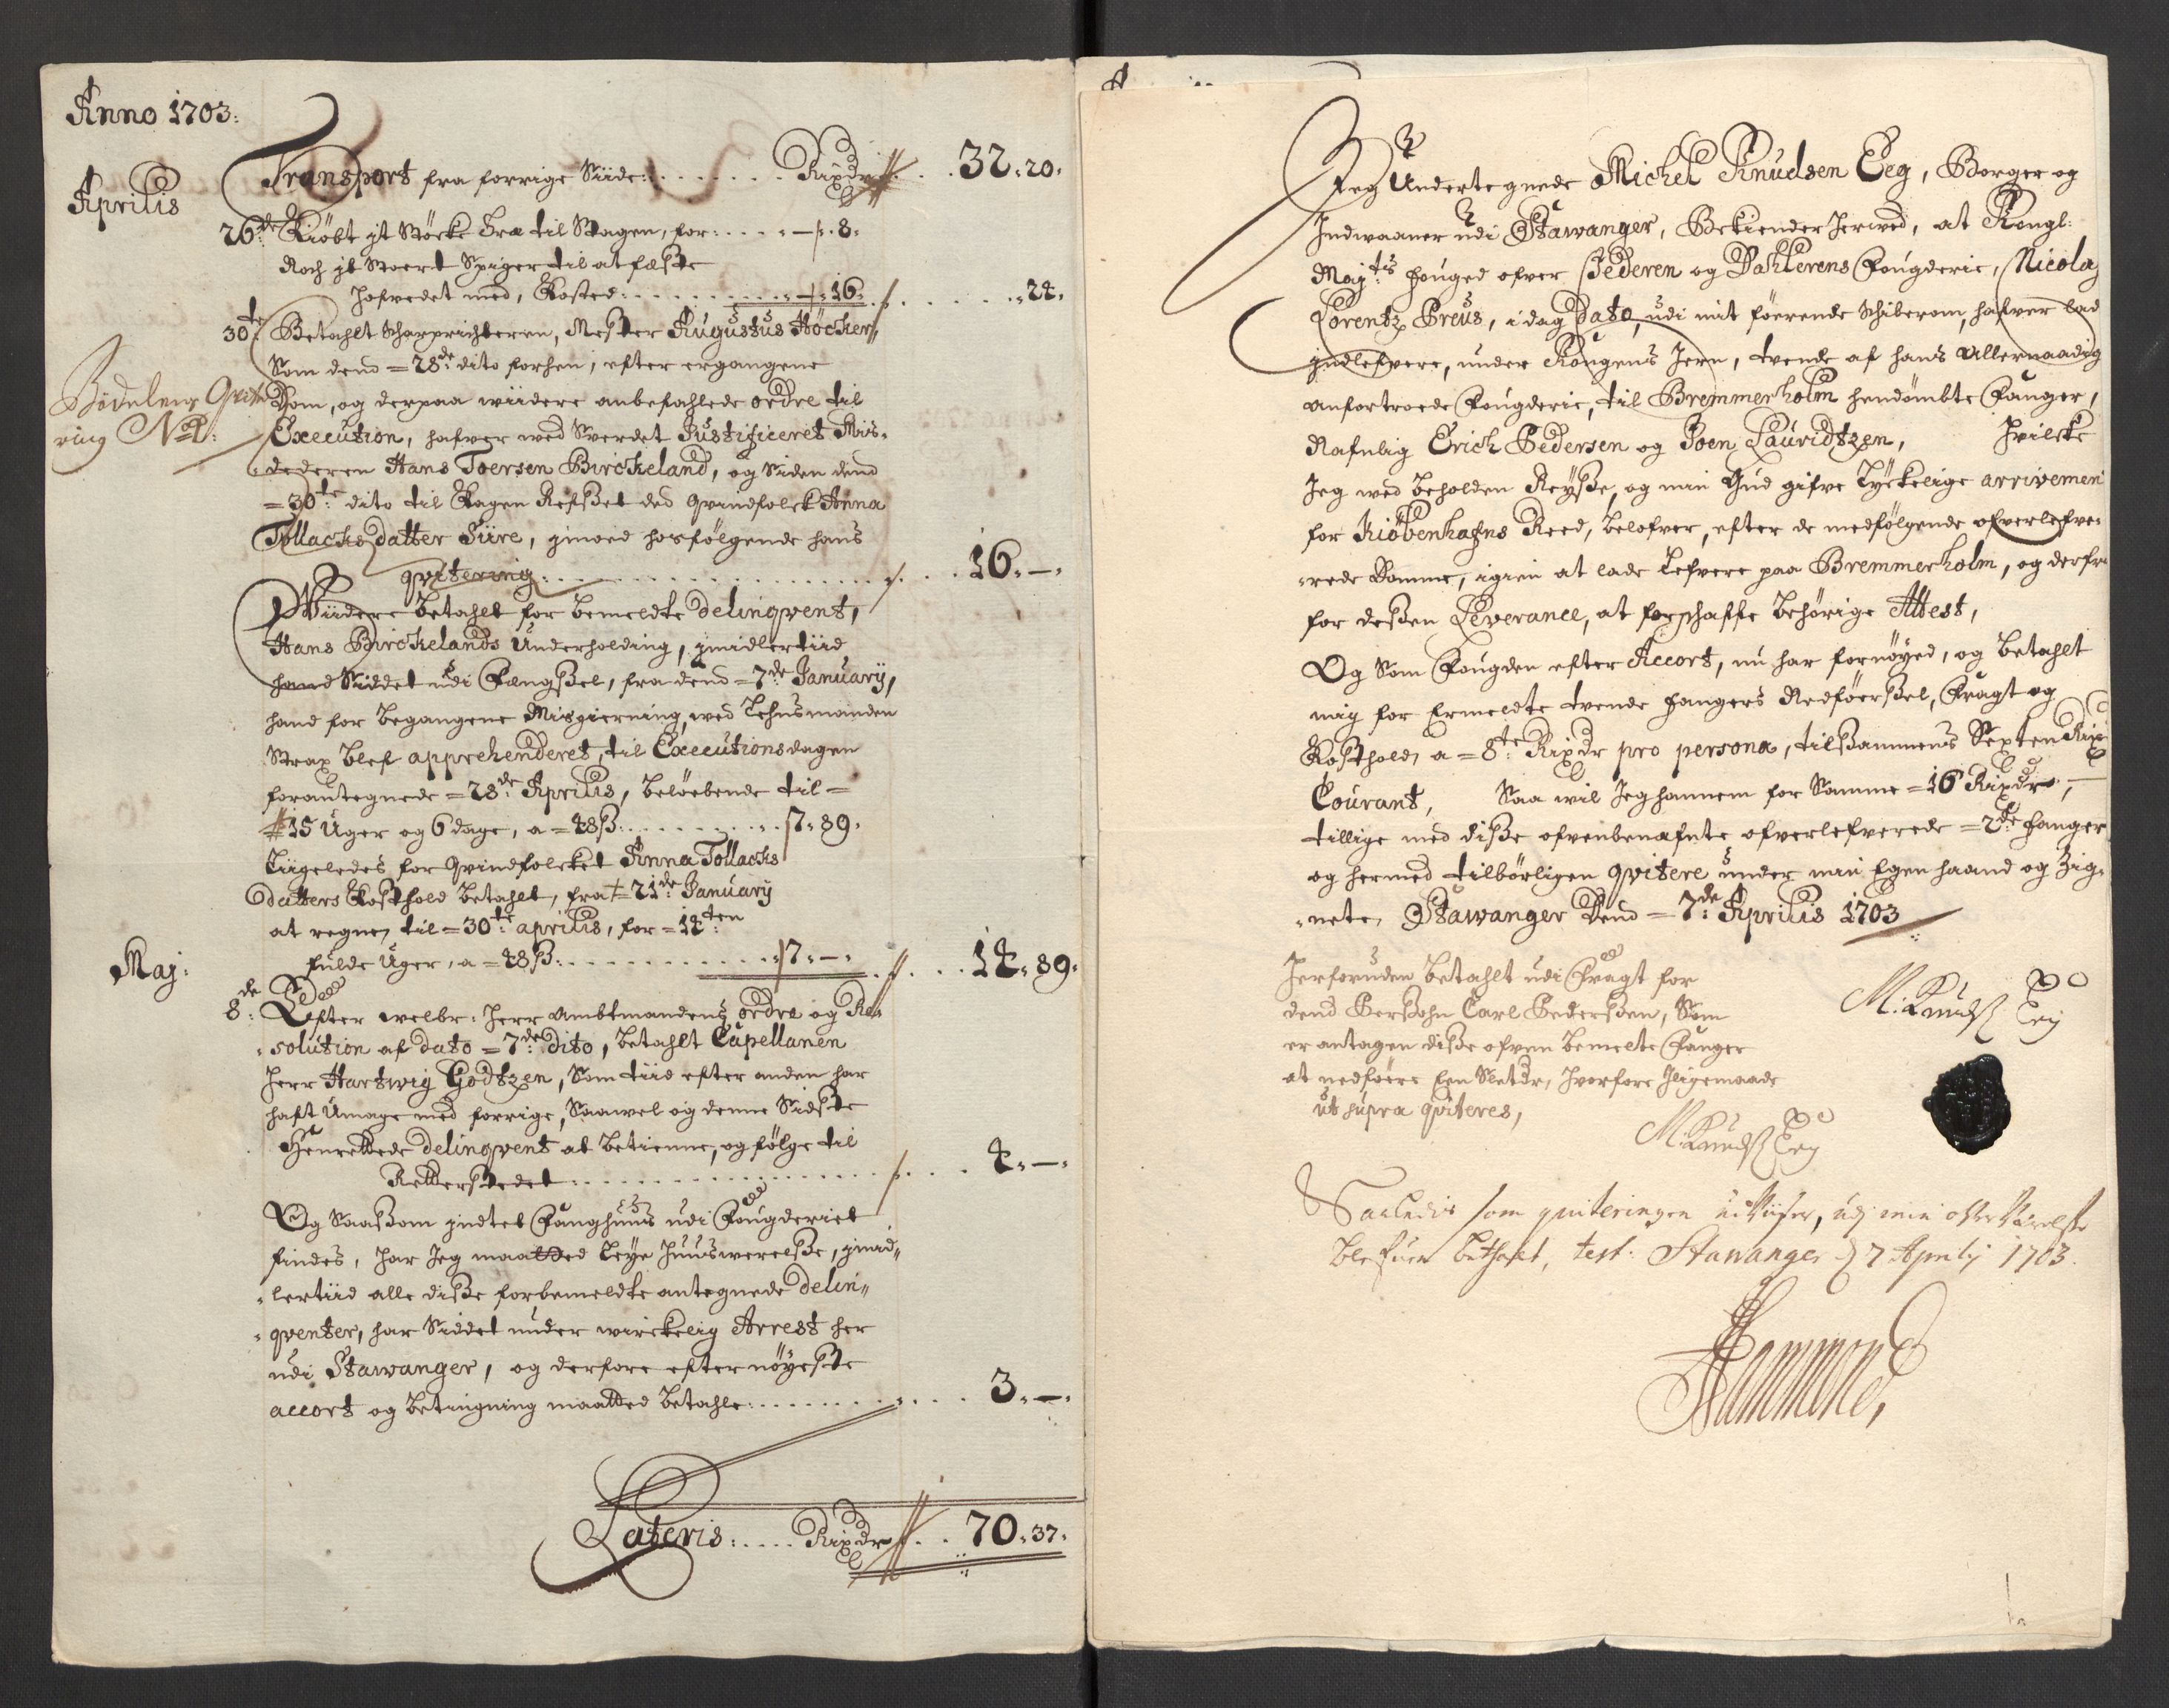 Anno 1703:
Aprilis
Transport fra forrige Siide: . . . . . . . Rixdr . . . 32 „ 20 „
26de Kiöbt jt Störke Træ til Stagen, for: . . . . „ — „ 8 „
Noch jt Stoert Spiger til at fæste
Hofvedet med, Kosted: . . . . . . . . . „ — „ 16 „ . . . . . . „ 24 „
30te Betahlt Scharprichteren, Mester Augustus Höcker,
Som dend = 28de dito forhen, efter ergangene
Bödelens Qvite
Dom, og derpaa wiidere anbefahlede ordre til
ring No
Execution, hafver med Sverdet Justificeret Mis-
dederen Hans Toersen Birckeland, og Siden dend
= 30te dito til Kagen Refsset det Qvindfolck Anna
Tollachsdatter Siire, jmoed hosfölgende hans
qvitering: . . . . . . . . . . . . . . . . . . . 16 „ — „
Wiidere betahlt for bemeldte delinqvent,
Hans Birckelands Underholding, jmidlertiid
hand Siddet udi Fængssel, fra dend = 7de January,
hand for begangene Misgierning, wed Lehnsmanden
Strax blef apprehenderet, til Executions dagen
forantegnede = 28de Aprilis, belöebende til =
15 Uger og 6 dage, a = 48 ß: . . . . . . . . . . 7 „ 89 „
Liigeledes for Qvindfolcket Anna Tollachs
datters Kosthold betahlt, fra = 21de January
at regne, til = 30te aprilis, for = 14ten
fulde Uger, a = 48 ß: . . . . . . . . . . . 7 „ — „ . . . . 14 „ 89 „
Maj:
8de Efter welbr: Herr Ambtmandens ordre og Re-
solution af dato = 7de dito, betahlt Capellanen
Herr Hartwig Godtzen, Som tiid efter anden har
haft Umage med forrige, Saawel og denne Sidste
Henrettede delinqvent at betienne, og fölge til
Retterstedet: . . . . . . . . . . . . . . . . 4 „ — „
Og Saasom jndtet Fanghuus udi Fougderiet
findes, har Jeg maatted Leye Huuswerelsse, jmid-
lertiid alle disse forbemeldte antegnede delin-
qventer, har Siddet under wirckelig Arrest her
udi Stawanger, og derfore efter nöyeste
accort og betingning maatted betahle: . . . . . . . . . . 3 „ — „
Lateris: . . . . Rixdr . . 70 „ 37 „
Jeg Undertegnede Michel Knudsen Eeg, Borger og
Jndwaaner udi Stawanger, Bekiender Herwed, at Kongl:
Maytis fouged ofver Jederen og Dahlerens Fougderie, Nicolaj
Lorentz Preus, i dag Dato, udi mit föerende Schiberom, hafver lad
jndlefvere, under Kongens Jern, tvende af hans allernaadig
anfortroede Fougderie, til Bremmerholm hendömbte Fanger,
Nafnlig Erich Pedersen og Joen Lauridtzen, Hvilcke
Jeg wed beholden Reysse, og min Gud gifve Lyckelige arrivement
for Kiöbenhafns Reed, belofver, efter de medfölgende ofverlefve-
rede Domme, igien at lade Lefvere paa Bremmerholm, og derfra
for dessen Leverance, at forschaffe behörige Attest,
Og Som Fougden efter Accort, nu har fornöyed, og betahlt
mig for Ermeldte tvende fangers Nedföerssel, Fragt og
Kosthold, a = 8te Rixdr pro persona, tilssammens Sexten Rix
Courant, Saa wil Jeg hannem for Samme = 16 Rixdr,
tillige med disse ofvenbenafnte ofverlefverede = 2de fanger
og hermed tilbörligen qvitere under min Egen haand og Zig-
nete, Stawanger Dend = 7de Aprilis 1703
Herforuden betahlt udi Fragt for
dend Persohn Carl Pederssen, Som
er antagen disse ofven bemelte Fanger
at nedföere Een Sletdr, Hvorfore Jligemaade
ut supra qviteres,
M: Knuds Eeg
M: Knuds Eeg
Saaledis som quiteringen udviser, udj min ofverværelsse
blefuen betahlt, test: Stawanger d 7 Aprilij 1703.
Hammond,